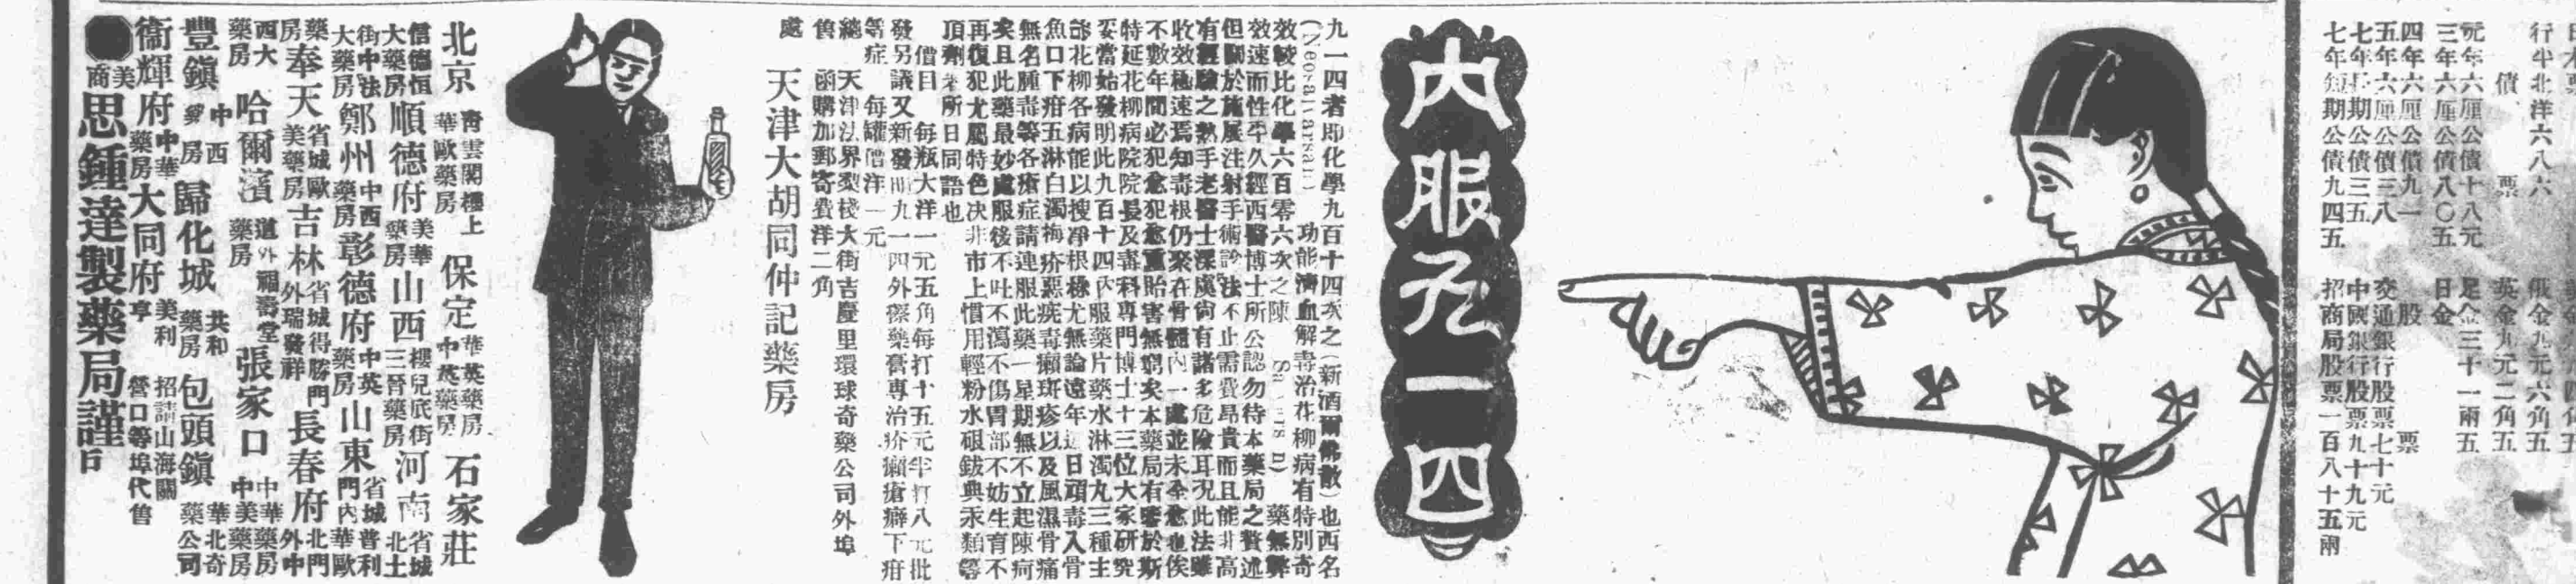 元年六厘公債十八元
三年六厘公債八〇五
四年六厘公債九一
五年六厘公債三八
七年長期公債三五
七年短期公債九四五
債票
英金九元二角五
俄金九元六角五
足金三十一兩五
日金
股票
交通銀行股票七十元
中國銀行股票九十九元
招商局股票一百八十五兩
內服九一四
九一四者即化學九百十四次之(新洒爾佛散)也西名
(Neosallarsan)功能濟血解毒治花柳病有特別奇
效較比化學六百零六次之陳
效速而性平久經西醫博士所公認勿待本藥局之贅述
但關於施展注射手術診法不止需費昂貴而且能非高
有經驗之熟手老醫士深虞尚有諸多危險耳况此法雖
收效極速焉知毒根仍聚在骨髓內一處並未全愈也俟
不數年間必犯愈犯愈重貽害無窮矣本藥局有鑒於斯
特延花柳病院院長及毒科專門博士十三位大家研究
妥當始發明此九百十四內服藥片藥水淋濁丸三種主
部花柳各病能以搜凈根株尤無論遠年近日頑毒入骨
魚口下疳五淋白濁梅疥惡瘡毒癩斑疹以及風濕骨痛
無名腫毒等各瘡症請連服此藥一星期無不立起陳疴
矣且此藥最妙處服後不吐不瀉不傷胃部不妨生育不
再復犯尤屬特色决非市上慣用輕粉水砒鈸典汞類等
頂劑者所日同語也
價目 每瓶大洋一元五角每打十五元半打八元批
發另議又新發明九一四外擦藥膏専治疥癩瘡癬下疳
等症 每罐價洋一元
總 天津法界梨棧大街吉慶里環球奇藥公司外埠
售 函購加郵寄費洋二角
處 天津大胡同仲記藥房
北京 青雲閣樓上 華歐藥房 保定 華英藥房 中英藥房 石家莊
信德恒大藥房 順德府 美華藥房 山西 樓兒底街三晉藥房 河南 省城北土
街中法大藥房 鄭州 中西藥房 彰德府 中英藥房 山東 省城普利門內華歐
藥房 奉天 省城歐美藥房 吉林 省城得勝門外瑞發祥 長春府 北門外中
西大藥房 哈爾濱 道外藥房 福壽堂 張家口 中華藥房 中美藥房
豐鎭 中西藥房 歸化城 共和藥房 包頭鎭 華北奇藥公司
衞輝府 中華藥房 大同府 美利亨 招請山海關營口等埠代售
美商思鍾達製藥局謹啓